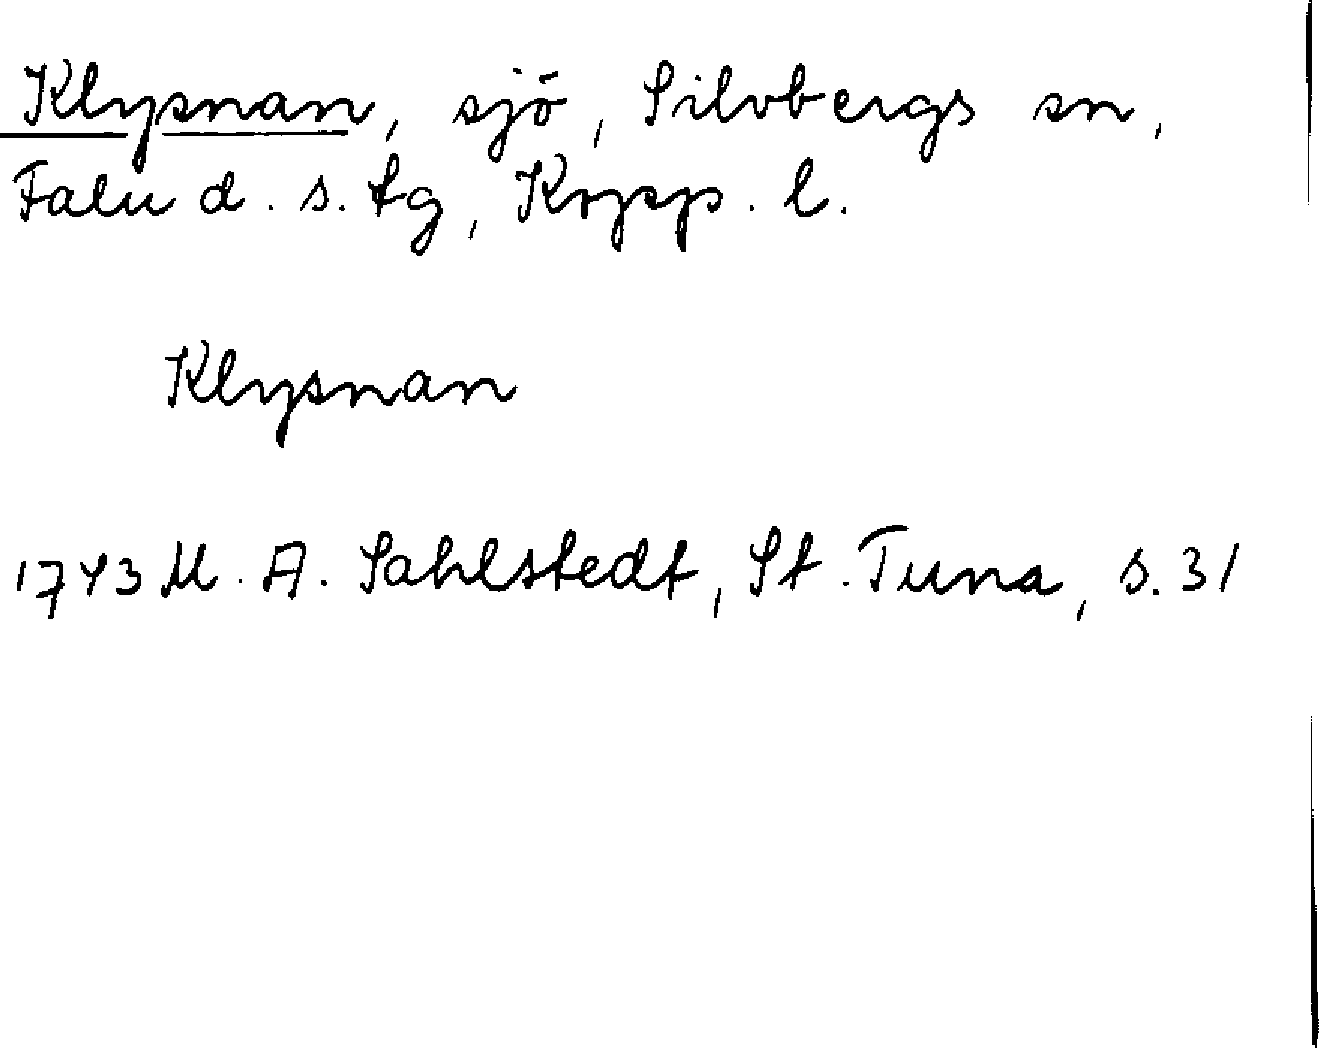 Klysnan, sjö, Silvbergs sn,
Falu d. s. tg, Kopp. l.
Klysnan
1743 M. A. Sahlstedt, St. Tuna, s. 31